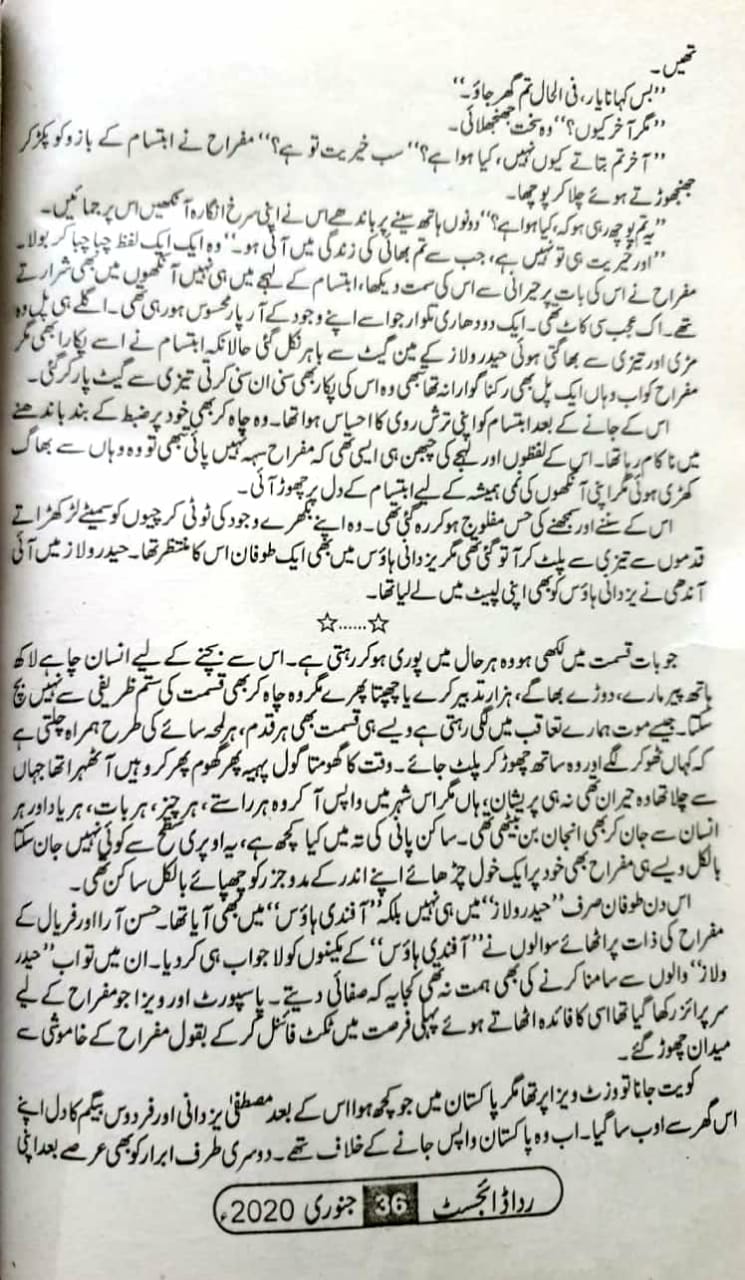 تھیں۔
”بس کہا نا یار، فی الحال تم گھر جاؤ۔“
”مگر آخر کیوں؟“ وہ سخت جھنجھلائی۔
”آخر تم بتاتے کیوں نہیں، کیا ہوا ہے؟“ سب خیریت تو ہے؟“ مفراح نے ابتسام کے بازو کو پکڑ کر
جھنجوڑتے ہوئے چلا کر پوچھا۔
”یہ تم پوچھ رہی ہو کہ، کیا ہوا ہے؟“ دونوں ہاتھ سینے پر باندھے اس نے اپنی سرخ انگارہ آنکھیں اس پر جمائیں۔
”اور خیریت ہی تو نہیں ہے، جب سے تم بھائی کی زندگی میں آئی ہو۔“ وہ ایک ایک لفظ چبا چبا کر بولا۔
مفراح نے اس کی بات پر حیرانی سے اس کی سمت دیکھا، ابتسام کے لہجے میں ہی نہیں آنکھوں میں بھی شرارتے
تھے۔ اک عجب سی کاٹ تھی۔ ایک دو دھاری تلوار جو اسے اپنے وجود کے آر پار محسوس ہو رہی تھی۔ اگلے ہی پل وہ
مڑی اور تیزی سے بھاگتی ہوئی حیدر ولاز کے مین گیٹ سے باہر نکل گئی حالانکہ ابتسام نے اسے پکارا بھی مگر
مفراح کو اب وہاں ایک پل بھی رکنا گوارا نہ تھا تبھی وہ اس کی پکار بھی سنی ان سنی کرتی تیزی سے گیٹ پار کر گئی۔
اس کے جانے کے بعد ابتسام کو اپنی ترش روی کا احساس ہوا تھا۔ وہ چاہ کر بھی خود پر ضبط کے بند باندھنے
میں ناکام رہا تھا۔ اس کے لفظوں اور لہجے کی چبھن ہی ایسی تھی کہ مفراح سہہ نہیں پائی تھی تو وہ وہاں سے بھاگ
کھڑی ہوئی مگر اپنی آنکھوں کی نمی ہمیشہ کے لیے ابتسام کے دل پر چھوڑ آئی۔
اس کے سننے اور سمجھنے کی حس مفلوج ہو کر رہ گئی تھی۔ وہ اپنے بکھرے وجود کی ٹوٹی کرچیوں کو سمیٹے لڑکھڑاتے
قدموں سے تیزی سے پلٹ کر آ تو گئی تھی مگر یزدانی ہاؤس میں بھی ایک طوفان اس کا منتظر تھا۔ حیدر ولاز میں آئی
آندھی نے یزدانی ہاؤس کو بھی اپنی لپیٹ میں لے لیا تھا۔
☆......☆
جو بات قسمت میں لکھی ہو وہ ہر حال میں پوری ہو کر رہتی ہے۔ اس سے بچنے کے لیے انسان چاہے لاکھ
ہاتھ پیر مارے، دوڑے بھاگے، ہزار تدبیر کرے یا چھپتا پھرے مگر وہ چاہ کر بھی قسمت کی ستم ظریفی سے نہیں بچ
سکتا۔ جیسے موت ہمارے تعاقب میں لگی رہتی ہے ویسے ہی قسمت بھی ہر قدم، ہر لمحہ سائے کی طرح ہمراہ چلتی ہے
کہ کہاں ٹھوکر لگے اور وہ ساتھ چھوڑ کر پلٹ جائے۔ وقت کا گھومتا گول پہیہ پھر گھوم پھر کر وہیں آ ٹھہرا تھا جہاں
سے چلا تھا وہ حیران تھی نہ ہی پریشان، ہاں مگر اس شہر میں واپس آ کر وہ ہر راستے، ہر چیز، ہر بات، ہر یاد اور ہر
انسان سے جان کر بھی انجان بن بیٹھی تھی۔ ساکن پانی کی تہ میں کیا کچھ ہے، یہ اوپری سطح سے کوئی نہیں جان سکتا
بالکل ویسے ہی مفراح بھی خود پر ایک خول چڑھائے اپنے اندر کے مدوجزر کو چھپائے بالکل ساکن تھی۔
اس دن طوفان صرف ”حیدر ولاز“ میں ہی نہیں بلکہ ”آفندی ہاؤس“ میں بھی آیا تھا۔ حسن آرا اور فریال کے
مفراح کی ذات پر اٹھائے سوالوں نے ”آفندی ہاؤس“ کے مکینوں کو لاجواب ہی کر دیا۔ ان میں تو اب ”حیدر
ولاز“ والوں سے سامنا کرنے کی بھی ہمت نہ تھی کجا یہ کہ صفائی دیتے۔ پاسپورٹ اور ویزا جو مفراح کے لیے
سرپرائز رکھا گیا تھا اسی کا فائدہ اٹھاتے ہوئے پہلی فرصت میں ٹکٹ فائنل کر کے بقول مفراح کے خاموشی سے
میدان چھوڑ گئے۔
کویت جانا تو وزٹ ویزا پر تھا مگر پاکستان میں جو کچھ ہوا اس کے بعد مصطفیٰ یزدانی اور فردوس بیگم کا دل اپنے
اس گھر سے اوب سا گیا۔ اب وہ پاکستان واپس جانے کے خلاف تھے۔ دوسری طرف ابرار کو بھی عرصے بعد اپنی
ردا ڈائجسٹ 36 جنوری 2020ء